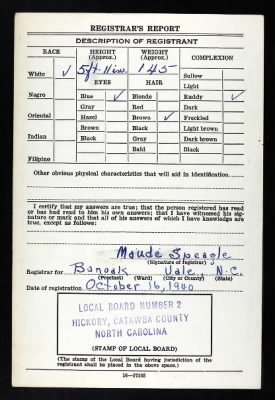 REGISTRAR'S REPORT
DESCRIPTION OF REGISTRANT
RACE HEIGHT (Approx.) WEIGHT (Approx.) COMPLEXION
White ✓ 5 ft. 11 in. 145 Sallow
EYES HAIR Light
Negro Blue ✓ Blonde Ruddy ✓
Gray Red Dark
Oriental Hazel Brown ✓ Freckled
Brown Black Light brown
Indian Black Gray Dark brown
Bald Black
Filipino
Other obvious physical characteristics that will aid in identification
I certify that my answers are true; that the person registered has read
or has had read to him his own answers; that I have witnessed his signature
or mark and that all of his answers of which I have knowledge are
true, except as follows:
Maude Speagle
(Signature of registrar)
Registrar for Banoak Vale, N.C.
(Precinct) (Ward) (City or County) (State)
Date of registration October 16, 1940
LOCAL BOARD NUMBER 2
HICKORY, CATAWBA COUNTY
NORTH CAROLINA
(STAMP OF LOCAL BOARD)
(The stamp of the Local Board having jurisdiction of the
registrant shall be placed in the above space.)